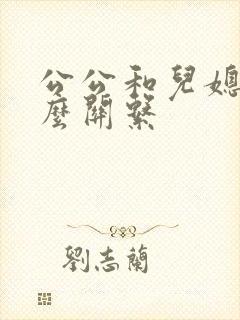 公公和兒媳
麼關繫
劉志蘭